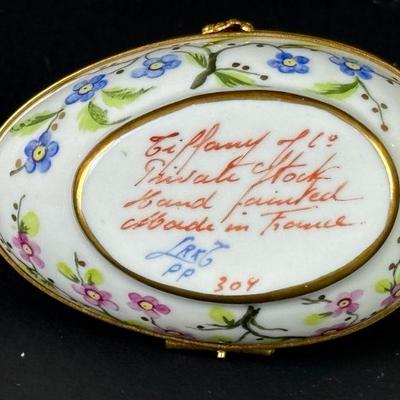 Tiffany & Co
Private Stock
Hand Painted
Made in France
PP
304